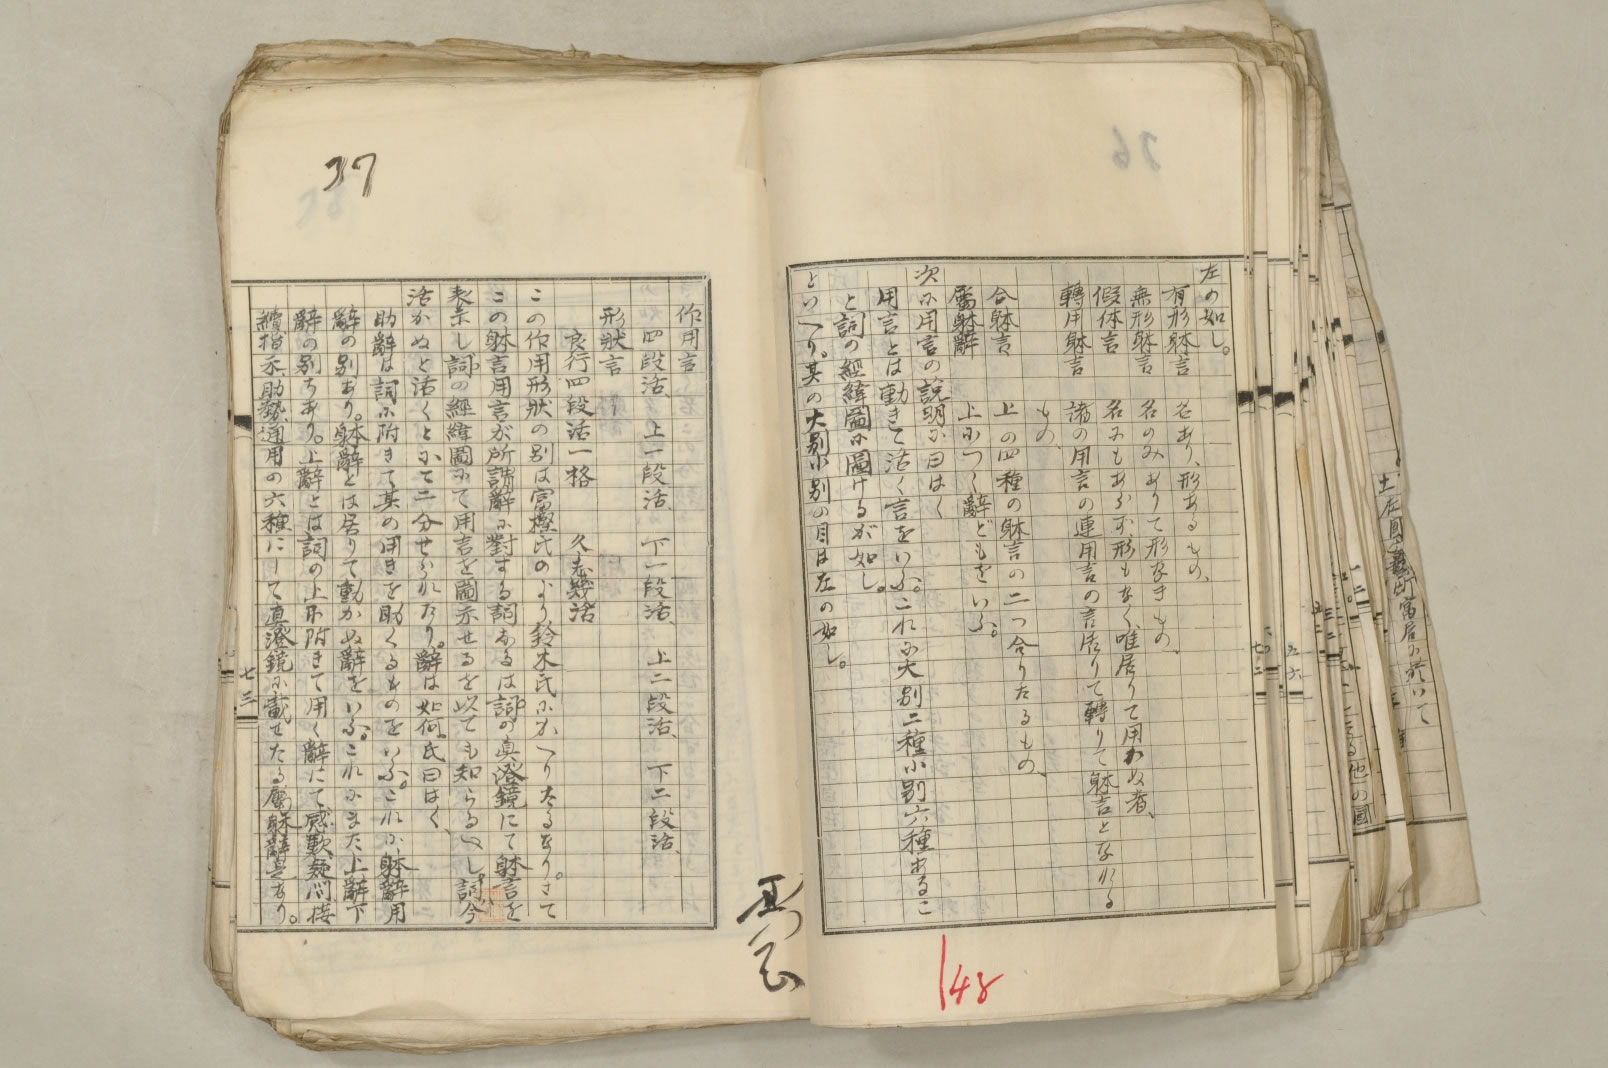 左の如し。
有形躰言　名あり、形あるもの、
無形躰言　名のみありて形なきもの、
假体言　名にもあらず、形もなく、唯居りて用わぬ者、
轉用躰言　諸の用言の連用言の言居りて轉りて躰言となれる
もの、
合躰言　上の四種の躰言の二つ合りたるもの、
属躰辭　上につく辭どもをいふ。
次に用言の説明に曰はく
用言とは動きて活く言をいふ。これに大別二種小別六種あるこ
と詞の經緯圖に圖けるが如し。
といへり。其の大別小別の目は左の如し。
148
37
作用言
四段活、上一段活、下一段活、上二段活、下二段活、
形狀言
良行四段活一格　久志幾活
この作用形狀の別は富樫氏のより鈴木氏にかへりたるなり。さて
この躰言用言が所謂辭に對する詞なるは詞の真澄鏡にて躰言を
表示し詞の經緯圖にて用言を圖示せるを以ても知らるべし。詞今
活かぬと活くとにて二分せられたり。辭は如何。氏曰はく、
助辭は詞に附きて其の用きを助くるものをいふ。これに躰辭用
辭の別あり。躰辭とは居りて動かぬ辭をいふ。これにまた上辭下
辭の別ちあり。上辭とは詞の上に附きて用く辭にて感歎疑問接
續指示助勢通用の六種にして真澄鏡に載せたる属躰辭是なり。
七三
七二